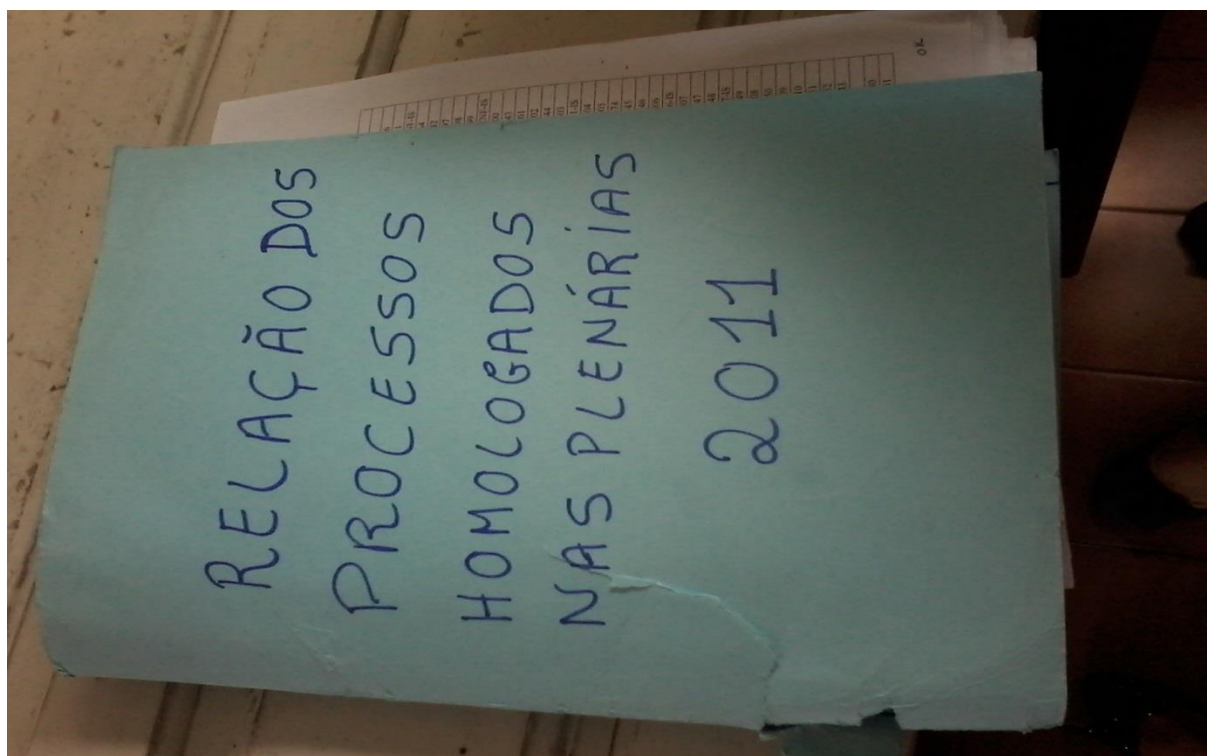 RELAÇÃO DOS
PROCESSOS
HOMOLOGADOS
NAS PLENÁRIAS
2011
OK